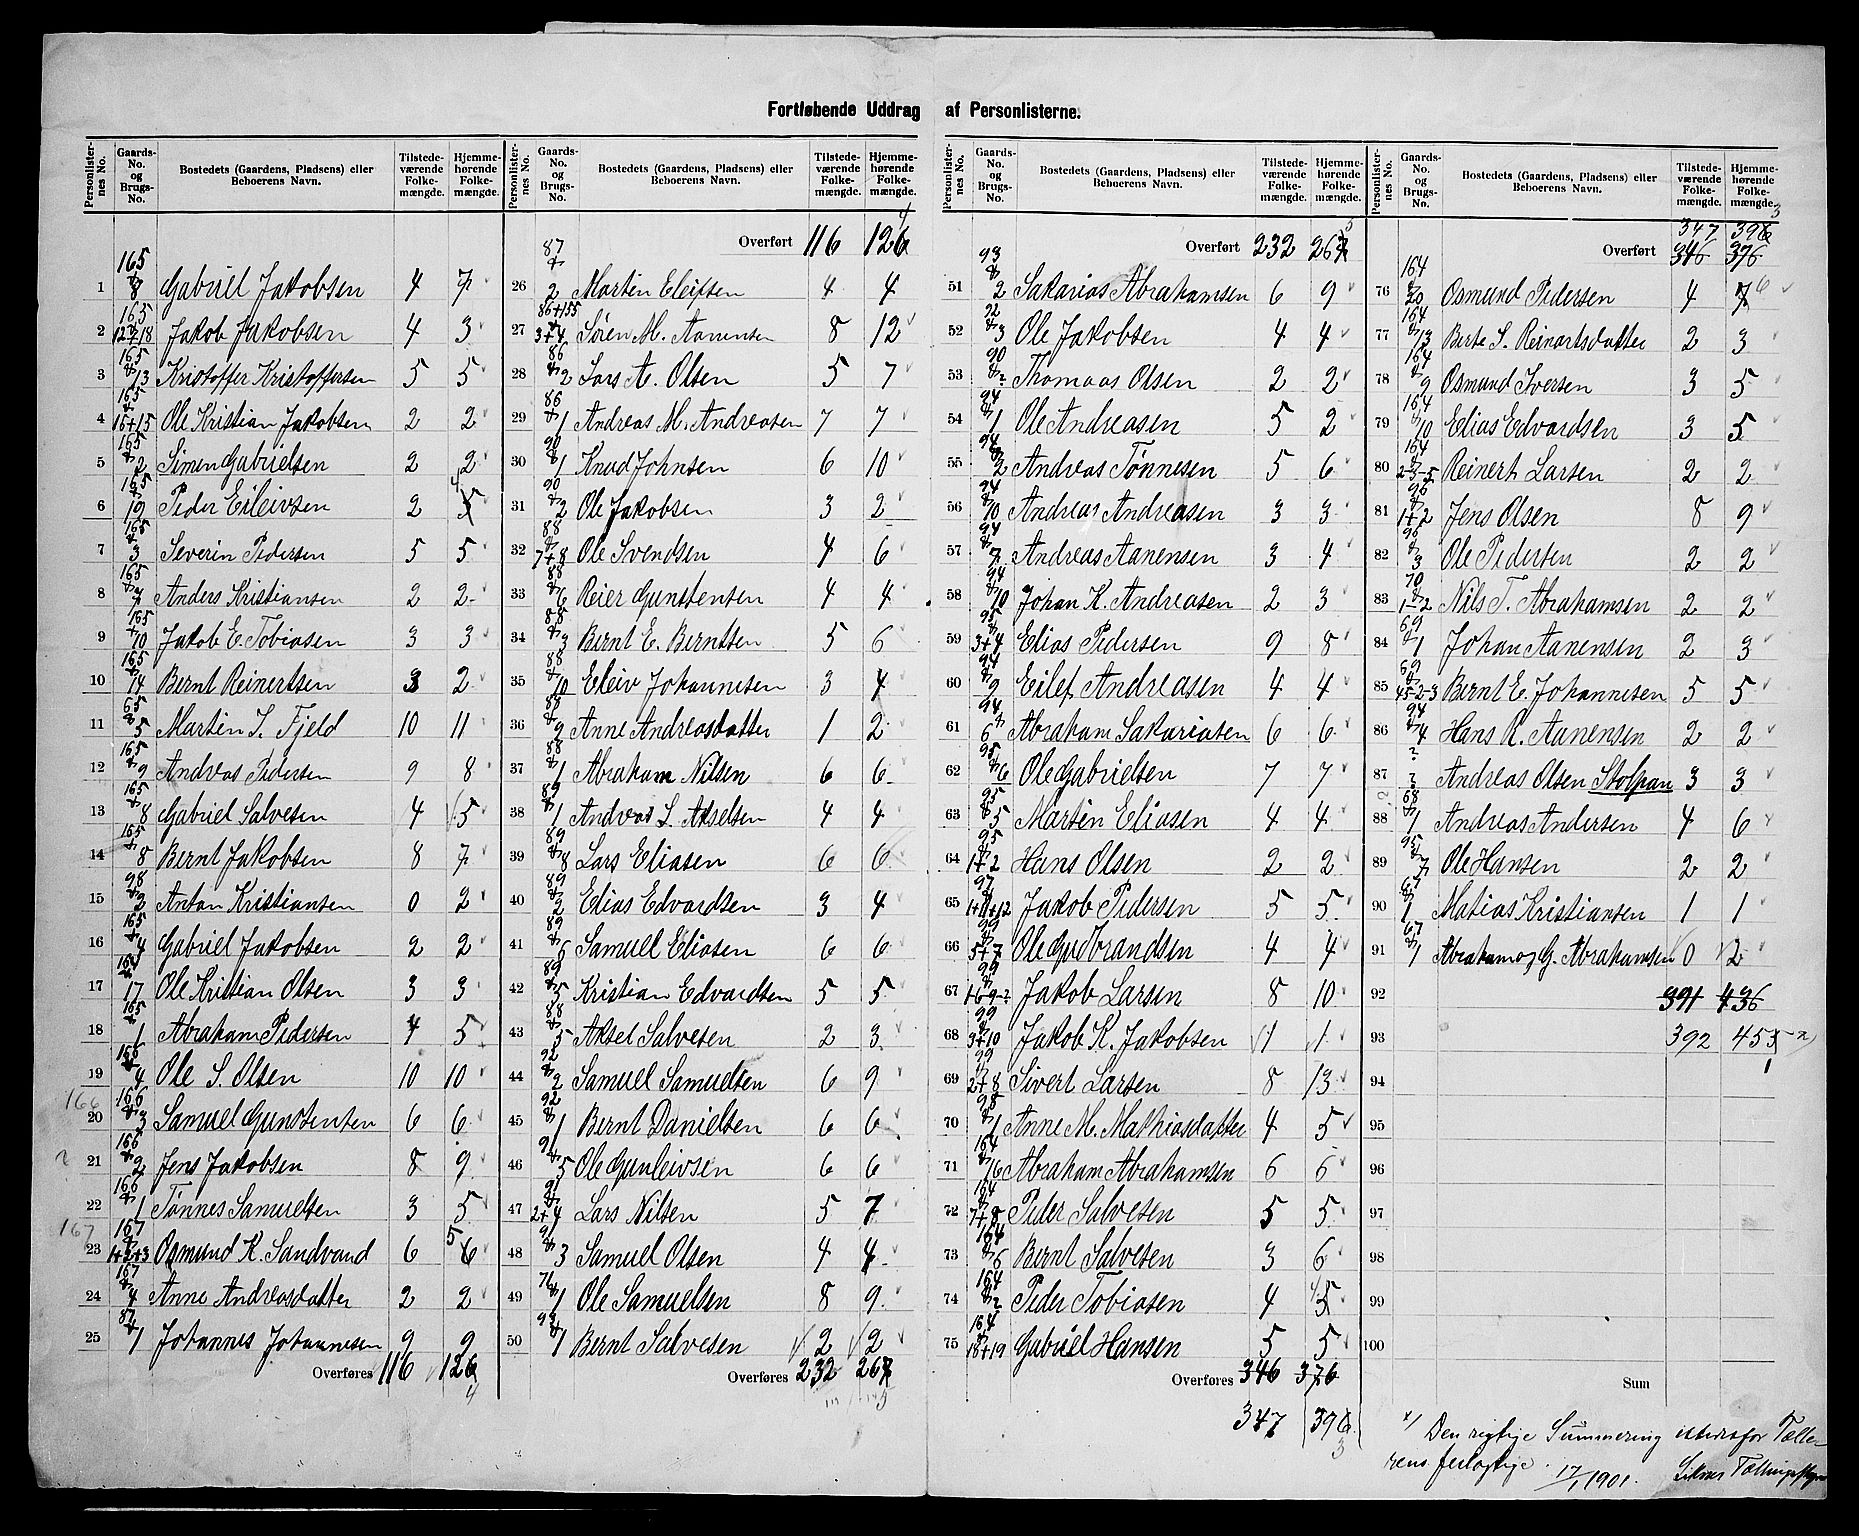 Fortløbende Uddrag af Personlisterne.
Personlister-nes No. | Gaards-No. og Brugs-No. | Bostedets (Gaardens, Pladsens) eller Beboerens Navn. | Tilstede-værende Folke-mængde. | Hjemme-hørende Folke-mængde.
1 165 8 Gabriel Jakobsen 4 7
2 165 12+18 Jakob Jakobsen 4 3
3 165 13 Kristoffer Kristoffersen 5 5
4 165 16+15 Ole Kristian Jakobsen 2 2
5 165 2 Simen Gabrielsen 2 2
6 165 19 Peder Eileivsen 2 4
7 165 3 Severin Pedersen 5 5
8 165 7 Anders Kristiansen 2 2
9 165 10 Jakob E. Tobiasen 3 3
10 165 14 Bernt Reinertsen 3 2
11 65 5 Martin S. Fjeld 10 11
12 165 9 Andreas Pedersen 9 8
13 165 8 Gabriel Salvesen 4 5
14 165 8 Bernt Jakobsen 8 7
15 98 3 Anton Kristiansen 0 2
16 165 4 Gabriel Jakobsen 2 2
17 164 17 Ole Kristian Olsen 3 3
18 165 1 Abraham Pedersen 4 5
19 166 4 Ole S. Olsen 10 10
166
20 166 3 Samuel Gunstensen 6 6
21 166 2 Jens Jakobsen 8 9
22 166 1 Tønnes Samuelsen 3 5
167
23 167 1+2+3 Osmund K. Sandvand 6 5
24 167 4 Anne Andreasdatter 2 2
25 87 1 Johannes Johannesen 9 9
Overføres 116 126 4
Personlister-nes No. | Gaards-No. og Brugs-No. | Bostedets (Gaardens, Pladsens) eller Beboerens Navn. | Tilstede-værende Folke-mængde. | Hjemme-hørende Folke-mængde.
Overført 116 126 4
26 87 2 Martin Eleifsen 4 4
27 86+155 3+4 Søren M. Aanensen 8 12
28 86 2 Lars A. Olsen 5 7
29 86 1 Andreas M. Andreasen 7 7
30 90 1 Knud Johnsen 6 10
31 90 2 Ole Jakobsen 3 2
32 88 7+8 Ole Svendsen 4 6
33 88 6 Reier Gunstensen 4 4
34 88 3 Bernt E. Berntsen 5 6
35 88 10 Eleiv Johannesen 3 4
36 88 9 Anne Andreasdatter 1 2
37 88 1 Abraham Nilsen 6 6
38 89 1 Andreas S. Akselsen 4 4
39 89 8 Lars Eliasen 6 6
40 89 2 Elias Edvardsen 3 4
41 89 6 Samuel Eliasen 6 6
42 89 5 Kristian Edvardsen 5 5
43 88 5 Aksel Salvesen 2 3
44 92 2 Samuel Samuelsen 6 9
45 92 1 Bernt Danielsen 6 6
46 91 5 Ole Gunleivsen 6 6
47 91 2+4 Lars Nilsen 5 7
48 91 3 Samuel Olsen 4 4
49 76 1 Ole Samuelsen 8 9
50 93 1 Bernt Salvesen 2 2
Overføres 232 267 5
Personlister-nes No. | Gaards-No. og Brugs-No. | Bostedets (Gaardens, Pladsens) eller Beboerens Navn. | Tilstede-værende Folke-mængde. | Hjemme-hørende Folke-mængde.
Overført 232 267 5
51 93 2 Sakarias Abrahamsen 6 9
52 92 3 Ole Jakobsen 4 4
53 90 2 Thomas Olsen 2 2
54 94 1 Ole Andreasen 5 2
55 94 2 Andreas Tønnesen 5 6
56 94 10 Andreas Andreasen 3 3
57 94 7 Andreas Aanensen 3 4
58 94 10 Johan K. Andreasen 2 3
59 95 3+4 Elias Pedersen 9 8
60 94 9 Eilef Andreasen 4 4
61 94 6 Abraham Sakariasen 6 6
62 95 6 Ole Gabrielsen 7 7
63 95 5 Martin Eliasen 4 4
64 95 1+2 Hans Olsen 2 2
65 97 1+11+12 Jakob Pedersen 5 5
66 99 5+7 Ole Gudbrandsen 4 4
67 99 Jakob Larsen 8 10
68 99 3+10 Jakob K. Jakobsen 1 1
69 99 2+8 Sivert Larsen 8 13
70 98 1 Anne M. Mathiasdatter 4 5
71 164 16 Abraham Abrahamsen 6 6
72 164 7+8 Peder Salvesen 5 5
73 164 6 Bernt Salvesen 3 6
74 164 2 Peder Tobiasen 4 5
75 164 18+19 Gabriel Hansen 5 5
Overføres 346 376
347 396 3
Personlister-nes No. | Gaards-No. og Brugs-No. | Bostedets (Gaardens, Pladsens) eller Beboerens Navn. | Tilstede-værende Folke-mængde. | Hjemme-hørende Folke-mængde.
347 396 3
Overført 346 376
76 164 20 Osmund Pedersen 4 7 6
77 164 13 Berte S. Reinertsdatter 2 3
78 164 9 Osmund Iversen 3 5
79 164 10 Elias Edvardsen 3 5
80 164 2-3-5 Reinert Larsen 2 2
81 96 1+2 Jens Olsen 8 9
82 96 3 Ole Pedersen 2 2
83 70 1-2 Nils T. Abrahamsen 2 2
84 69 1 Johan Aanensen 2 3
85 69 45-2-3 Bernt E. Johannesen 5 5
86 94 4 Hans R. Aanensen 2 2
87 ? ? Andreas Olsen Stolpan 3 3
88 68 1 Andreas Andersen 4 6
89 95 7 Ole Hansen 2 2
90 67 1 Matias Kristiansen 1 1
91 67 1 Abraham og G. Abrahamsen 0 2
92 391 436
93 392 453 x)
1
94
95
96
97
98
99
100
Sum
x) Den rigtige Summering istedenfor Tælle-
rens feilagtige. 17/1 1901.